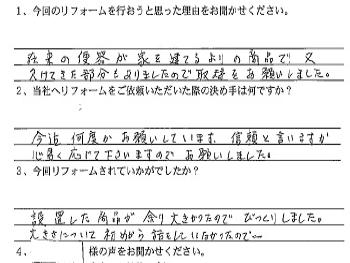 1、今回のリフォームを行おうと思った理由をお聞かせください。
在来の便器が家を建てるよりの商品で 又
欠けてきた部分もありましたので取接をお願いしました。
2、当社へリフォームをご依頼いただいた際の決め手は何ですか?
今迄 何度か お願いしています 信頼と言いますか
心易く応じて下さいますので お願いしました。
3、今回リフォームされていかがでしたか?
設置した商品が 余り大きかたので びっくりしました。
大きさについて 初から 話をしていなかたので
4、 様の声をお聞かせください。